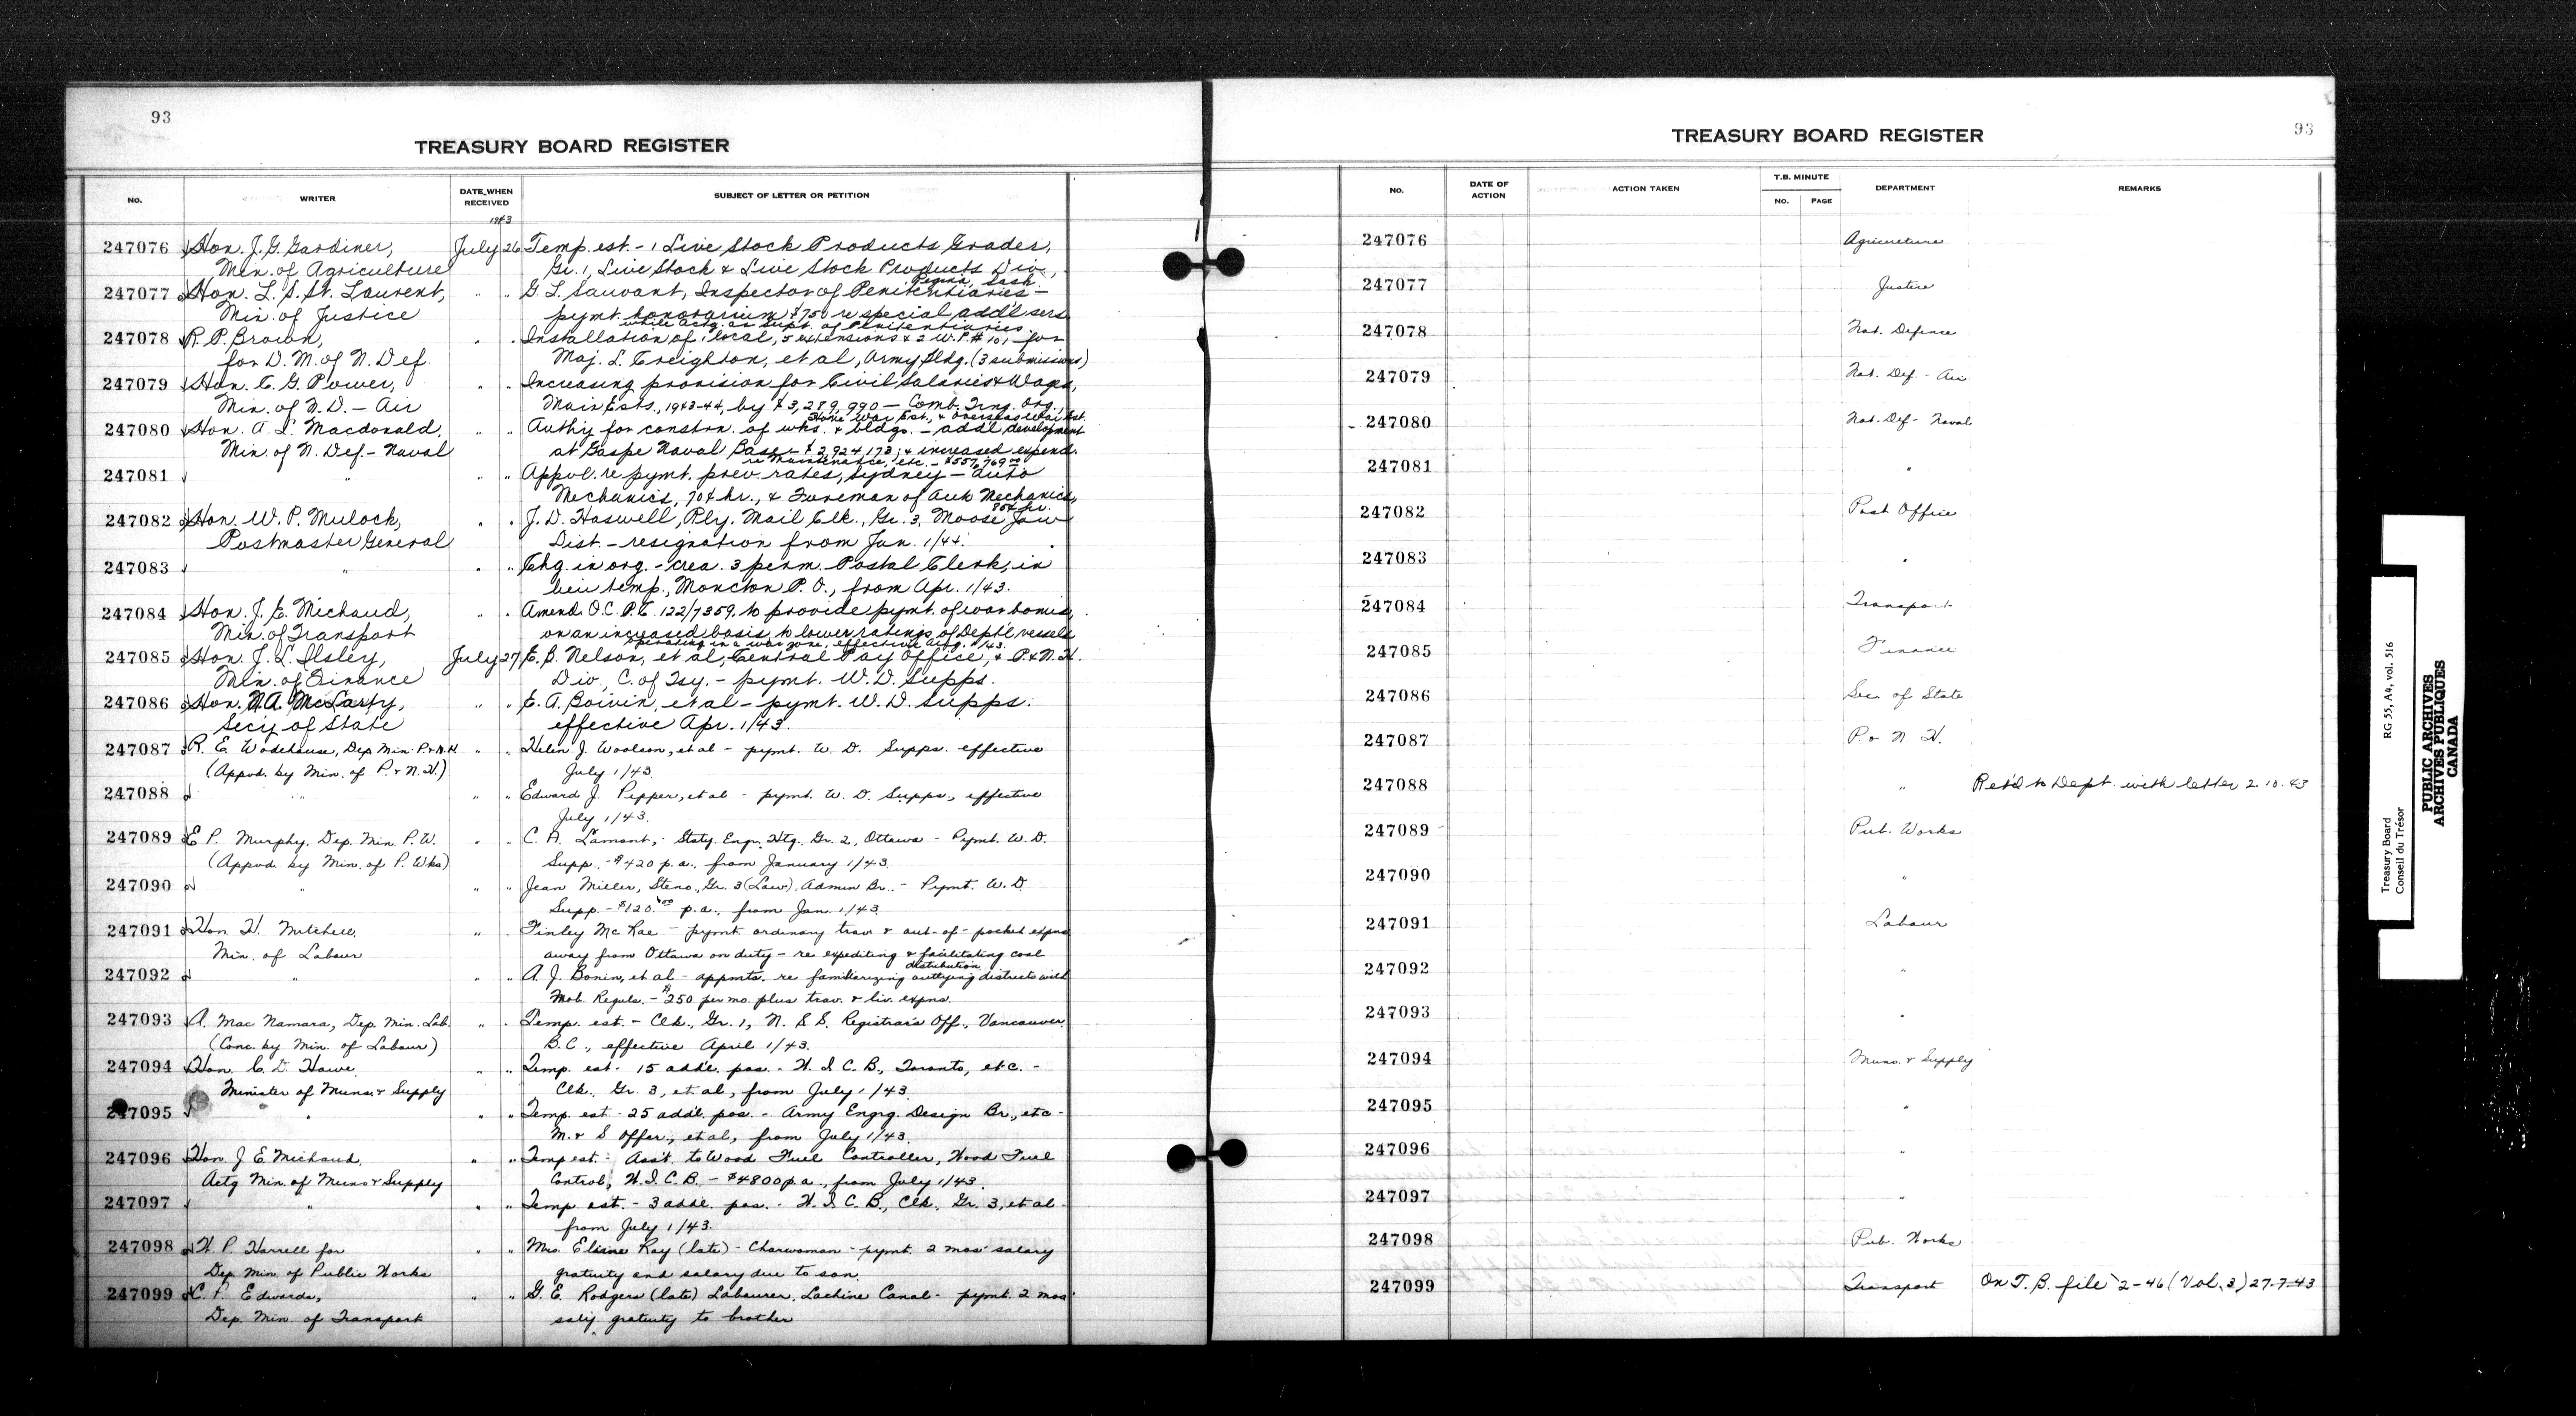 93
TREASURY BOARD REGISTER
No. WRITER DATE WHEN RECEIVED SUBJECT OF LETTER OR PETITION
1943
247076 Hon. J. G. Gardiner, July 26 Temp. est. - 1 Live Stock Products Grader,
Min. of Agriculture Gr. 1, Live Stock & Live Stock Products Div.,
Regina, Sask.
247077 Hon. L. S. St. Laurent, " " G. L. Sauvant, Inspector of Penitentiaries -
Min. of Justice pymt. honorarium $750 re special addl sers
while actg. as Supt. of Penitentiaries.
247078 R. P. Brown, " " Installation of 1 local, 5 extensions & 2 W.P. # 101 for
for D. M. of N. Def. Maj. L. Creighton, et al, Army Bldg. (3 submissions)
247079 Hon. C. G. Power, " " Increasing provision for Civil Salaries & Wages,
Min. of N. D. - Air Main Ests., 1943-44, by $3,289,990 - Comb. Trng. Org.,
Home War Est., & Overseas War Est.
247080 Hon. A. L. Macdonald, " " Auth'y for constrn. of wks. & bldgs. - addl development
Min. of N. Def. - Naval at Gaspe Naval Base - $2,924,173, & increased expend.
re maintenance, etc. - $557,769.00
247081 " " " Appvl. re pymt. prev. rates, Sydney - Auto
Mechanics, 70¢ hr., & Foreman of Auto Mechanics,
80¢ hr.
247082 Hon. W. P. Mulock, " " J. D. Haswell, Rly. Mail Clk., Gr. 3, Moose Jaw
Postmaster General Dist. - resignation from Jan. 1/44.
247083 " " " Chg. in org. - crea. 3 perm. Postal Clerk, in
lieu temp., Moncton P. O., from Apr. 1/43.
247084 Hon. J. E. Michaud, " " Amend. O.C. P.C. 122/7359, to provide pymt. of war bonus,
Min. of Transport on an increased basis, to lower ratings of Dept'l vessels
operating in a war zone, effective Aug. 1/43.
247085 Hon. J. L. Ilsley, July 27, E. B. Nelson, et al, Central Pay Office, & P. & N. H.
Min. of Finance Div., C. of Tsy. - pymt. W. D. Supps.
247086 Hon. N. A. McLarty, " " E. A. Boivin, et al - pymt. W. D. Supps.
Sec'y of State effective Apr. 1/43.
247087 R. E. Wodehouse, Dep. Min. P. & N. H. " " Helen J. Woolson, et al - pymt. W. D. Supps. effective
(Appvd. by Min. of P. & N. H.) July 1/43.
247088 " " " Edward J. Pepper, et al - pymt. W. D. Supps., effective
July 1/43.
247089 E. P. Murphy, Dep. Min. P. W. " " C. A. Lamont, - Staty. Engr. Htg. Gr. 2, Ottawa - Pymt. W. D.
(Appvd. by Min. of P. Wks) Supp. - $420 p.a., from January 1/43.
247090 " " " Jean Miller, Steno., Gr. 3 (Law), Admin Br. - Pymt. W. D.
Supp. - $120.00 p.a., from Jan. 1/43.
247091 Hon. H. Mitchell, " " Finley McRae - pymt. ordinary trav & out-of-pocket expns
Min. of Labour away from Ottawa on duty - re expediting & facilitating coal
distribution
247092 " " " A. J. Bonin, et al - appmts. re familiarizing outlying districts with
Mob. Regula. - $250 per mo. plus trav. & liv. expns.
247093 A. MacNamara, Dep. Min. Lab. " " Temp. est. - Clk., Gr. 1, N. S. S. Registrar's Off., Vancouver,
(Conc. by Min. of Labour) B.C., effective April 1/43.
247094 Hon. C. D. Howe, " " Temp. est. - 15 add'l. pos. - W. I. C. B., Toronto, etc. -
Minister of Muns. & Supply Clk., Gr. 3, et al, from July 1/43.
247095 " " " Temp. est. - 25 add'l. pos. - Army Engrg. Design Br., etc -
M. & S Offcr., et al, from July 1/43.
247096 Hon. J. E. Michaud, " " Temp est. - Ass't. to Wood Fuel Controller, Wood Fuel
Actg Min. of Muns & Supply Control, W. I. C. B. - $4800 p.a., from July 1/43.
247097 " " " Temp. est. - 3 add'l. pos. - W. I. C. B., Clk., Gr. 3, et al -
from July 1/43.
247098 W. P. Harrell for " " Mrs. Eliane Ray (late) - Charwoman - pymt. 2 mos' salary
Dep. Min. of Public Works gratuity and salary due to son.
247099 C. P. Edwards, " " G. E. Rodgers (late) Labourer, Lachine Canal - pymt. 2 mos'
Dep. Min. of Transport sal'y gratuity to brother
93
TREASURY BOARD REGISTER
No. DATE OF ACTION ACTION TAKEN T.B. MINUTE NO. PAGE DEPARTMENT REMARKS
247076 Agriculture
247077 Justice
247078 Nat. Defence
247079 Nat. Def. - Air
247080 Nat. Def - Naval
247081 "
247082 Post Office
247083 "
247084 Transport
247085 Finance
247086 Sec. of State
247087 P. & N. H.
247088 " Ret'd to Dept. with letter 2.10.43
247089 Pub. Works
247090 "
247091 Labour
247092 "
247093 "
247094 Muns. & Supply
247095 "
247096 "
247097 "
247098 Pub. Works
247099 Transport On T. B. file 2-46 (Vol. 3) 27-7-43
Treasury Board RG 55, A4, vol. 516
Conseil du Trésor
PUBLIC ARCHIVES
ARCHIVES PUBLIQUES
CANADA